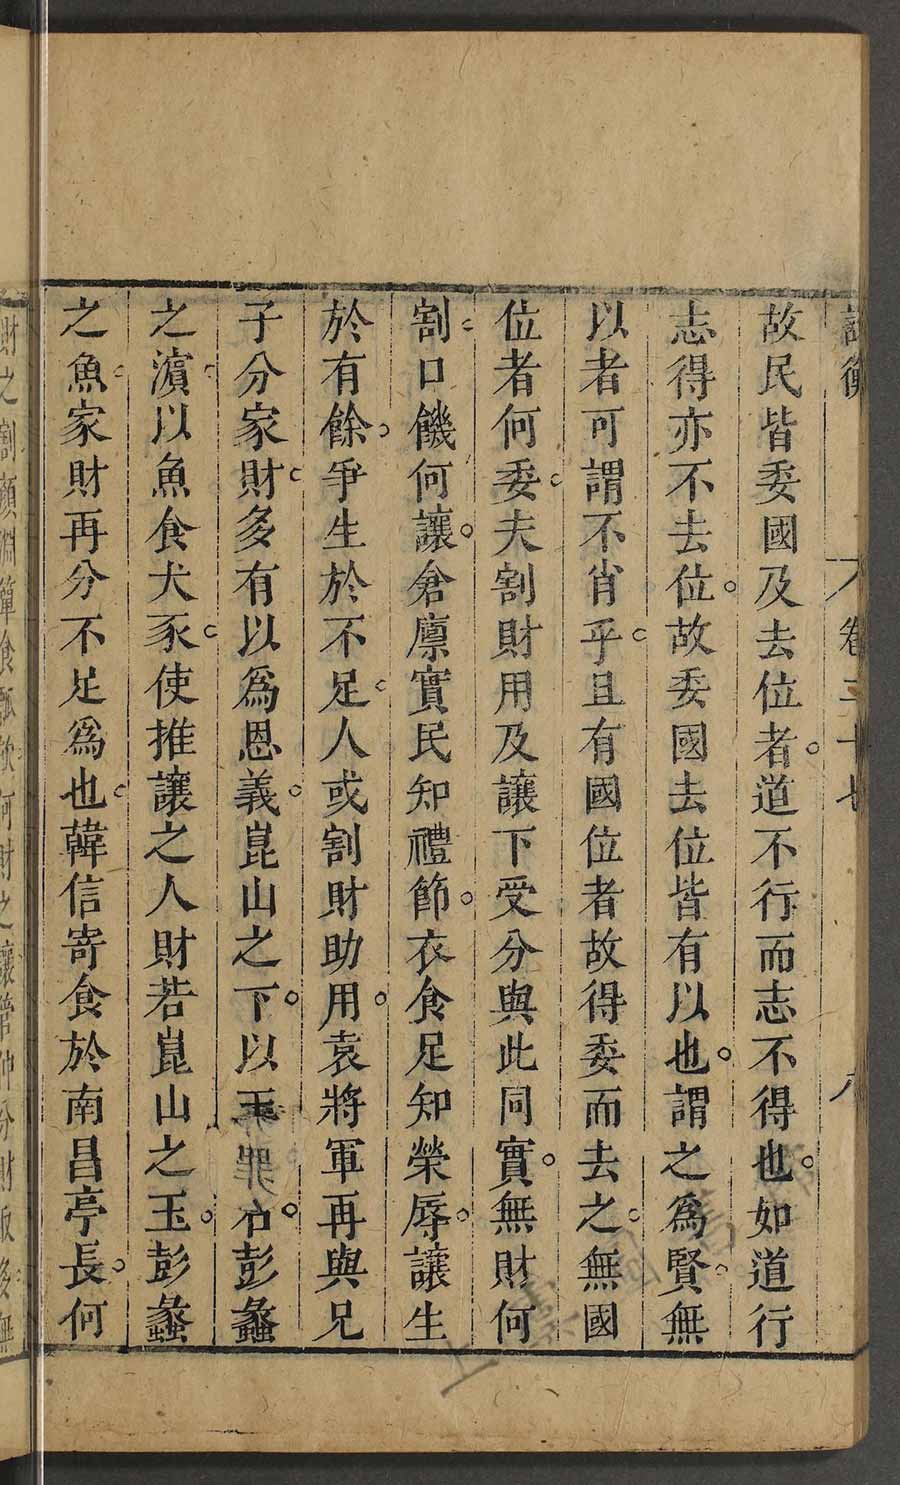 論衡 卷二十七 八
故民皆委國及去位者。道不行而志不得也。如道行
志得亦不去位。故委國去位皆有以也。謂之爲賢。無
以者可謂不肖乎。且有國位者故得委而去之。無國
位者何委。夫割財用及讓下受分與此同實。無財何
割。口饑何讓。倉廩實民知禮節。衣食足知榮辱。讓生
於有餘。爭生於不足。人或割財助用。袁將軍再與兄
子分家財。多有以爲恩義。崑山之下。以玉 石。彭蠡
之濵。以魚食犬豕。使推讓之人財若崑山之玉。彭蠡
之魚。家財再分不足爲也。韓信寄食於南昌亭長。何
財之割顏淵簞食瓢飲何財之讓管仲分財取多無